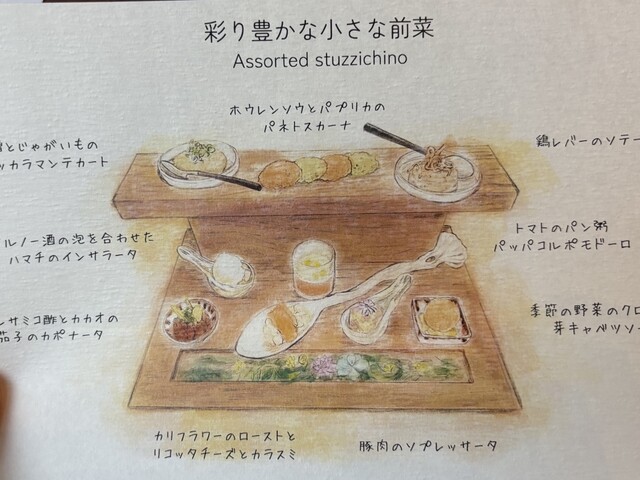 彩り豊かな小さな前菜
Assorted stuzzichino
ホウレンソウとパプリカの
パネトスカーナ
とじゃがいもの
ッカラマンテカート
鶏レバーのソテー
ルノー酒の泡を合わせた
ハマチのインサラータ
トマトのパン粥
パッパコルポモドーロ
サミコ酢とカカオの
茄子のカポナータ
季節の野菜のクロ
芽キャベツソー
カリフラワーのローストと
リコッタチーズとカラスミ
豚肉のソプレッサータ